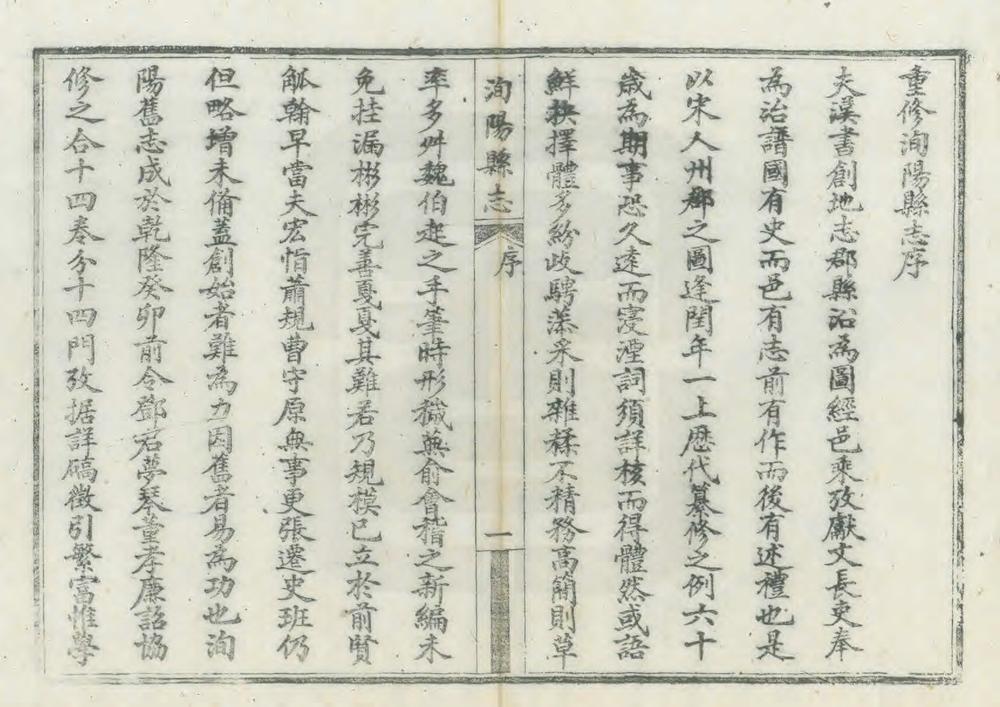 重修洵陽縣志序
夫溪書創地志郡縣沿為圖經邑乘攷獻文長吏奉
為治譜國有史而邑有志前有作而後有述禮也是
以宋人州郡之圖逢閏年一上歷代纂修之例六十
歲為期事恐久遠而寖湮詞須詳核而得體然或語
鮮抉擇體多紛歧騁藻采則雜糅不精務高簡則草
洵陽縣志
序
一
率多艸魏伯起之手筆時形穢蕪俞會稽之新編未
免挂漏彬彬完善戛戛其難若乃規模已立於前賢
觚翰早當夫宏恉蕭規曹守原無事更張遷史班仍
但略增未備蓋創始者難為力因舊者易為功也洵
陽舊志成於乾隆癸卯前令鄧君夢琴董孝廉詔協
修之合十四卷分十四門攷据詳碻徵引繁富惟學